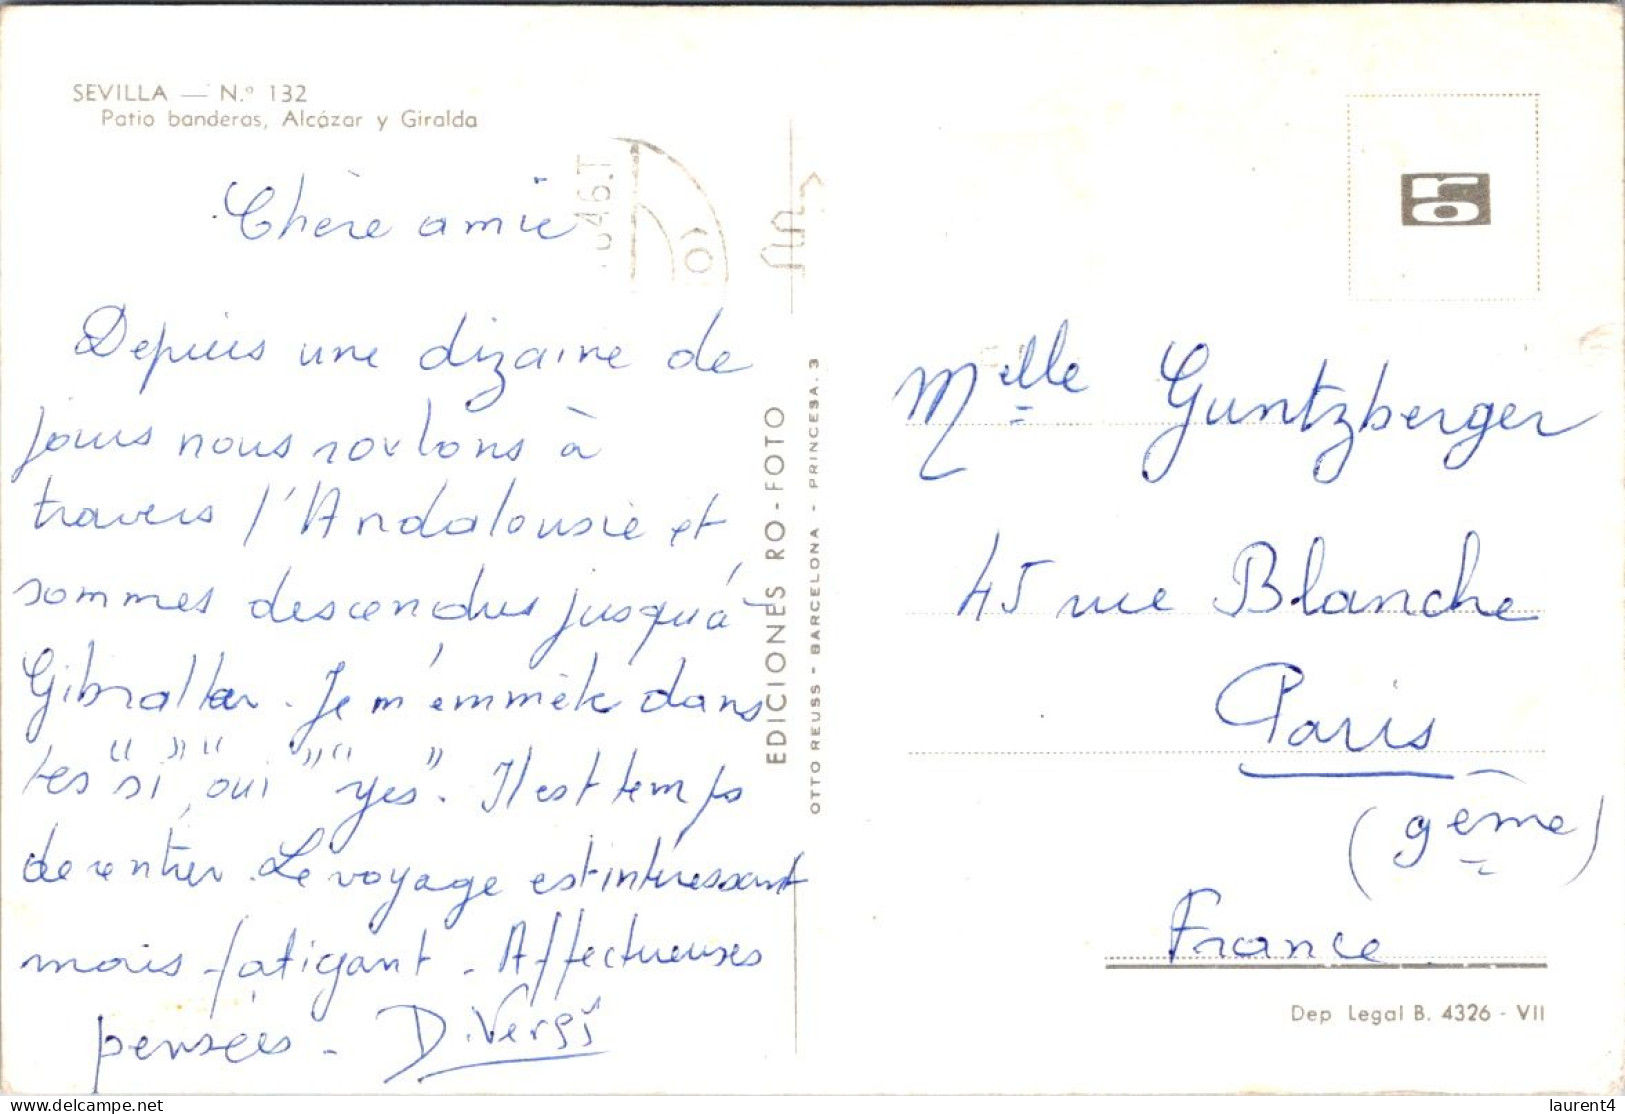 SEVILLA — N.º 132
Patio banderas, Alcázar y Giralda
Chère amie
Depuis une dizaine de
jours nous roulons à
travers l'Andalousie et
sommes descendus jusqu'à
Gibraltar. Je m'emmèle dans
les "si", "oui" "yes". Il est temps
de rentrer. Le voyage est intéressant
mais fatigant. Affectueuses
pensées.
EDICIONES RO-FOTO
OTTO REUSS - BARCELONA - PRINCESA. 3
ro
Melle Guntzberger
45 rue Blanche
Paris
(9ème)
France
Dep Legal B. 4326 - VII
delcampe.net
laurent4